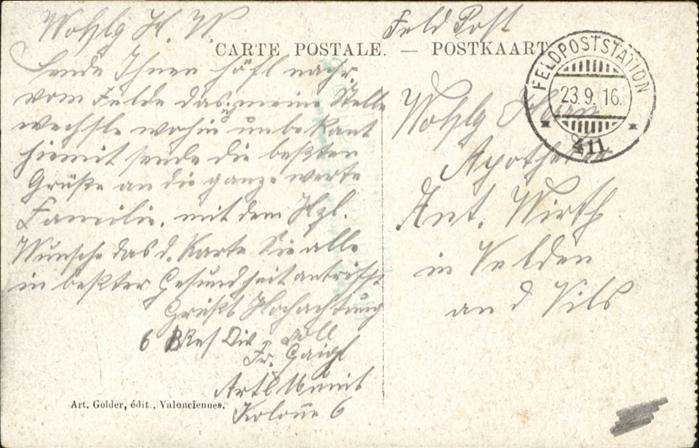 Feld Post
CARTE POSTALE. — POSTKAART
FELDPOSTSTATION
23.9.16.
411
Wohlg H. W.
Sende Ihnen höfl nachr.
vom Felde das meine Stelle
wechsle wohin unbekant
hiemit sende die beßten
Grüße an die ganze werte
Familie. mit dem Hzl.
Wunsche das d. Karte Sie alle
in beßter Gesundheit antrifft
Grüßt Hochachtung
voll
6 B Res Div Fr.
Artl Munit
Kolone 6
Wohlg Herrn
Apotheker
Ant. Wirth
in Velden
an d Vils
Art. Golder, édit., Valenciennes.